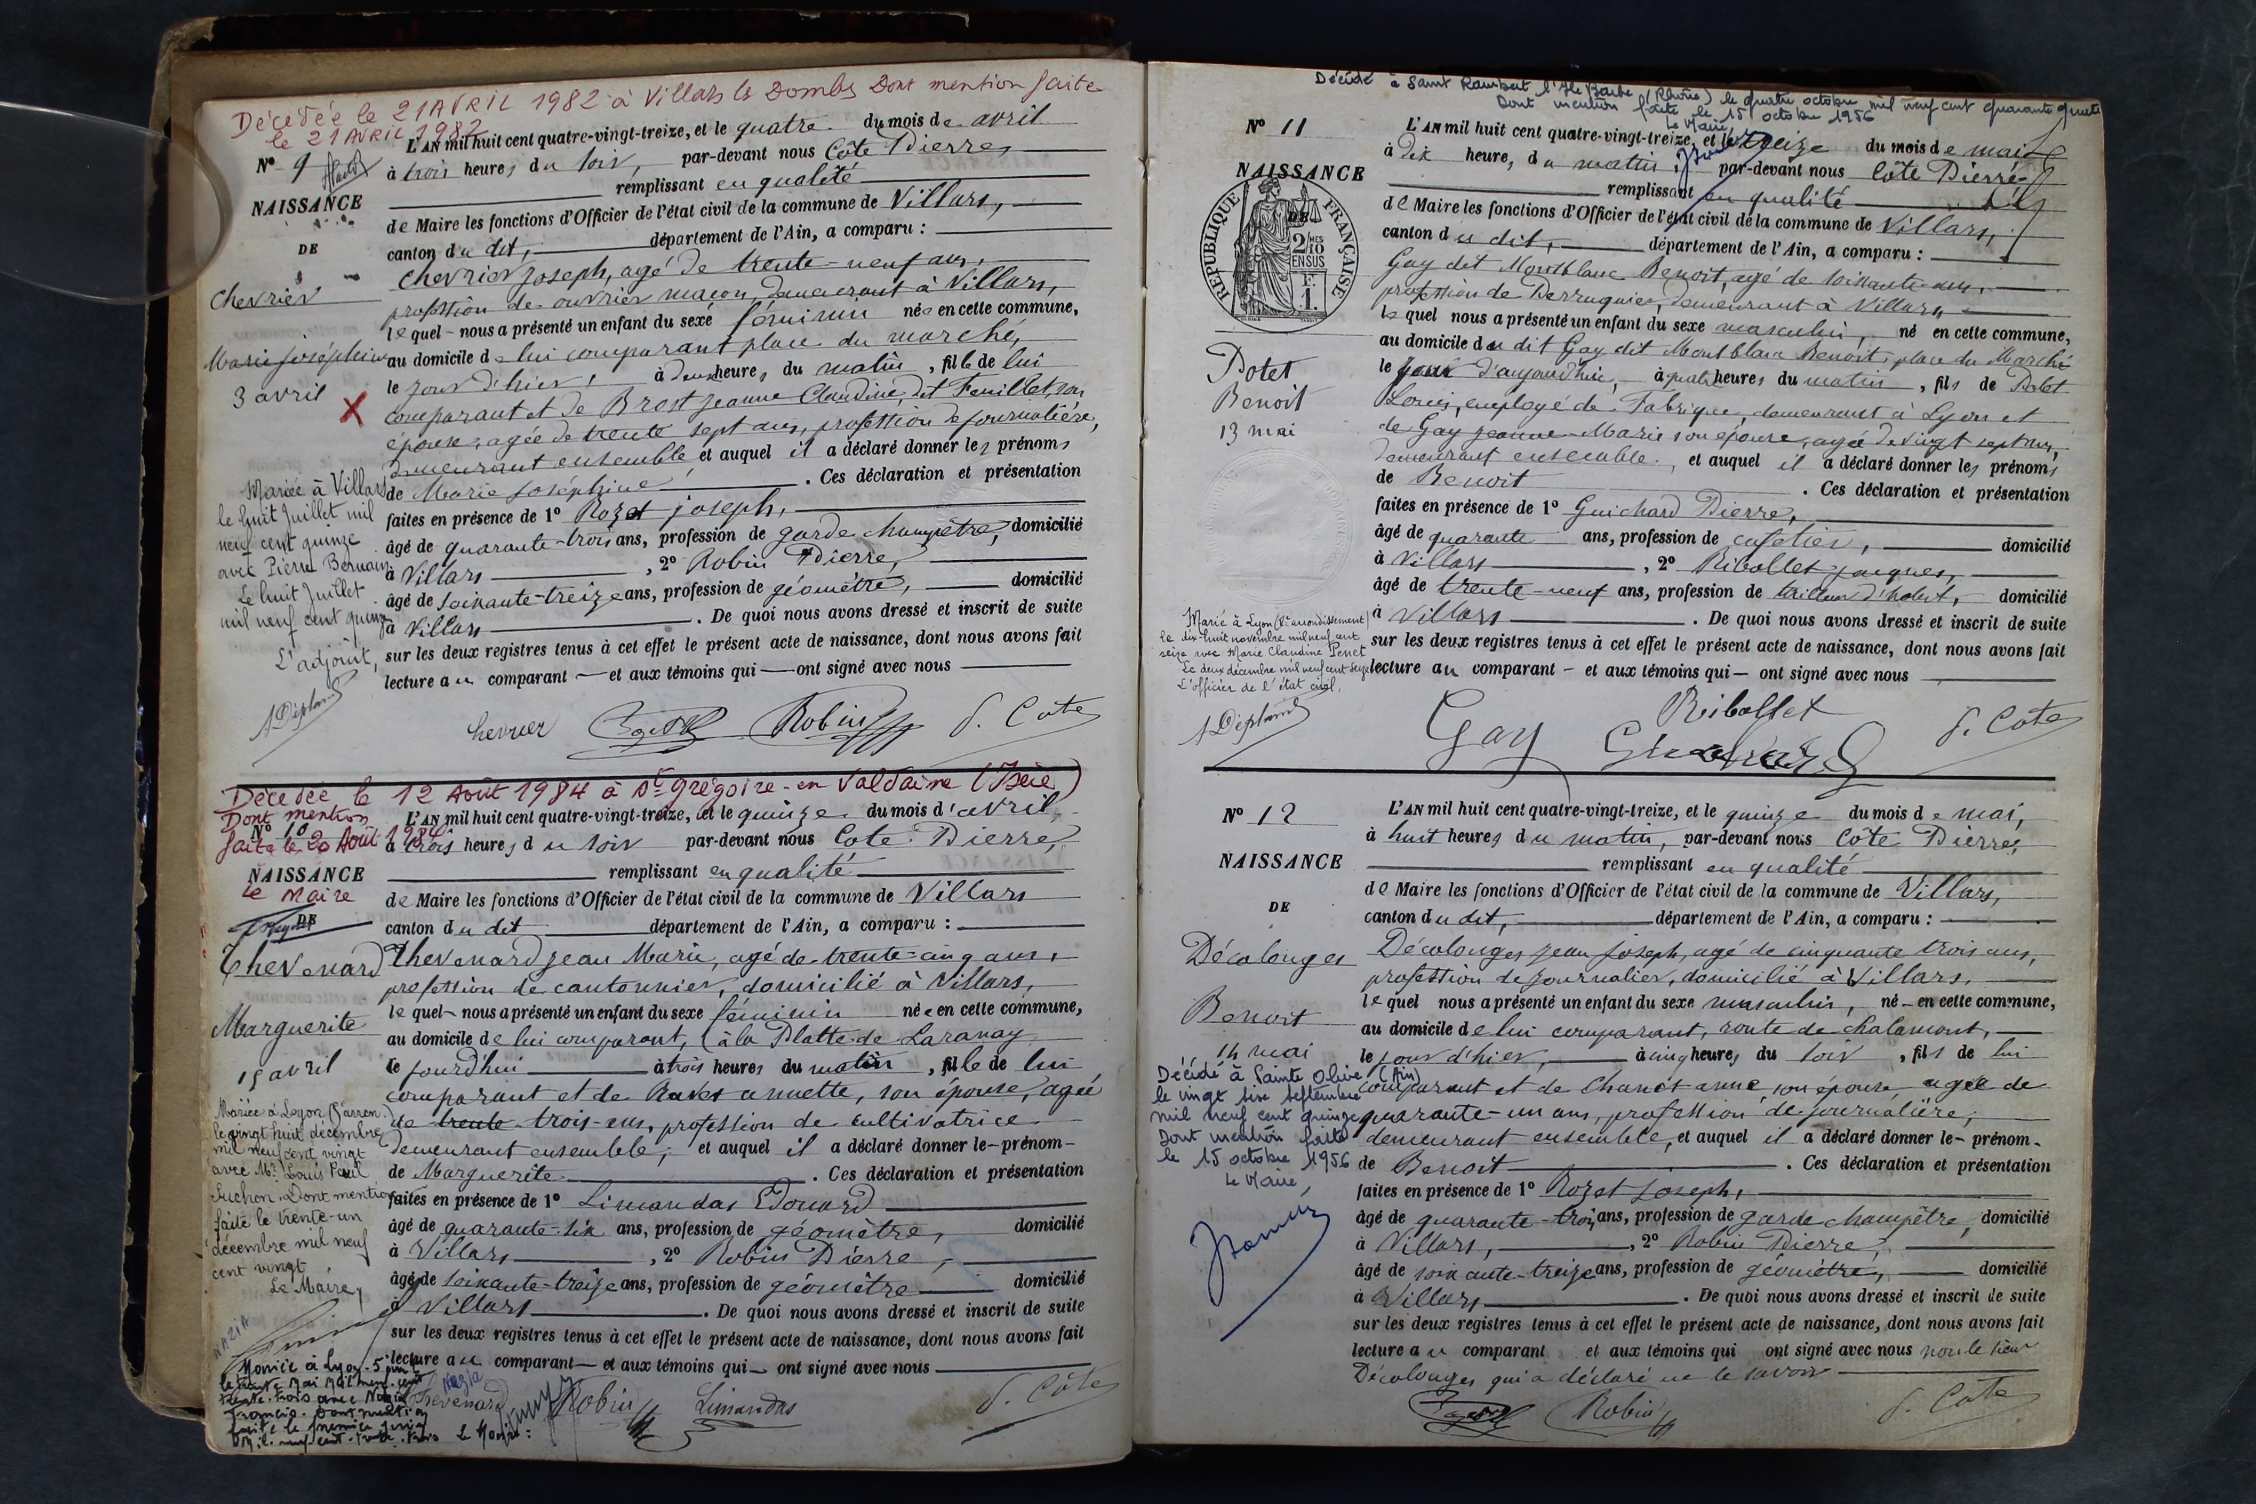 Décédée le 21 AVRIL 1982 à Villars les Dombes Dont mention faite
le 21 AVRIL 1982
N° 9
NAISSANCE
DE
Chevrier
Marie Joséphine
3 avril
X
Mariée à Villars
le huit Juillet mil
neuf cent quinze
avec Pierre Bernain
Le huit Juillet
mil neuf cent quinze
L'adjoint,
L'AN mil huit cent quatre-vingt-treize, et le quatre du mois de avril
à trois heures du soir, par-devant nous Côte Pierre
remplissant en qualité
de Maire les fonctions d'Officier de l'état civil de la commune de Villars,
canton du dit, département de l'Ain, a comparu :
Chevrier Joseph, agé de trente-neuf ans,
profession de ouvrier maçon, demeurant à Villars,
lequel nous a présenté un enfant du sexe féminin née en cette commune,
au domicile de lui comparant place du marché,
le jour d'hier, à deux heures du matin, fille de lui
comparant et de Brost Jeanne Claudine dit Feuillet, son
épouse, agée de trente sept ans, profession de journalière,
demeurant ensemble, et auquel il a déclaré donner les prénoms
de Marie Joséphine. Ces déclaration et présentation
faites en présence de 1° Rozet Joseph,
âgé de quarante-trois ans, profession de garde champêtre, domicilié
à Villars, 2° Robin Pierre,
âgé de soixante-treize ans, profession de géomètre, domicilié
à Villars. De quoi nous avons dressé et inscrit de suite
sur les deux registres tenus à cet effet le présent acte de naissance, dont nous avons fait
lecture au comparant et aux témoins qui ont signé avec nous
Robin P. Côte
Décédée le 12 Août 1984 à St Grégoire-en Valdaine (Isère)
Dont mention
faite le 20 Août 1984
N° 10
NAISSANCE
Le Maire
DE
Thevenard
Marguerite
15 avril
Mariée à Lyon
le vingt huit décembre
mil neuf cent vingt
avec Mr Louis Paul
Suchon. Dont mention
faite le trente-un
décembre mil neuf
cent vingt
Le Maire,
L'AN mil huit cent quatre-vingt-treize, et le quinze du mois d'avril
à trois heures du soir par-devant nous Cote Pierre,
remplissant en qualité
de Maire les fonctions d'Officier de l'état civil de la commune de Villars
canton du dit département de l'Ain, a comparu :
Thevenard Jean Marie, agé de trente-cinq ans,
profession de cantonnier, domicilié à Villars,
lequel nous a présenté un enfant du sexe féminin née en cette commune,
au domicile de lui comparant, à la Platte de Laranay
le jourd'hui à trois heures du matin, fille de lui
comparant et de annette, son épouse, agée
de trente trois ans, profession de cultivatrice
demeurant ensemble, et auquel il a déclaré donner le prénom
de Marguerite. Ces déclaration et présentation
faites en présence de 1° Limandas Edouard
âgé de quarante-six ans, profession de géomètre, domicilié
à Villars, 2° Robin Pierre,
âgé de soixante-treize ans, profession de géomètre domicilié
à Villars. De quoi nous avons dressé et inscrit de suite
sur les deux registres tenus à cet effet le présent acte de naissance, dont nous avons fait
lecture au comparant et aux témoins qui ont signé avec nous
NAZIA
Mariée à Lyon
le trente Mai mil neuf cent
trente-trois avec Nazia
François. Dont mention
faite le premier juin
Mil neuf cent trente-trois Le Maire :
Thevenard Robin Limandas P. Côte
Décédé à Saint Rambert l'Ile Barbe (Rhône) le quatre octobre mil neuf cent quarante quatre
Dont mention faite le 15 octobre 1956
Le Maire,
N° 11
NAISSANCE
DE
RÉPUBLIQUE FRANÇAISE
2/10 MES
EN SUS
F.
1.
Potet
Benoit
13 mai
Marié à Lyon (Ve arrondissement)
le dix huit novembre mil neuf cent
seize avec Marie Claudine Penet
Le deux décembre mil neuf cent seize
L'officier de l'état civil,
L'AN mil huit cent quatre-vingt-treize, et le treize du mois de mai
à dix heure, du matin, par-devant nous Côte Pierre
remplissant en qualité
de Maire les fonctions d'Officier de l'état civil de la commune de Villars,
canton du dit, département de l'Ain, a comparu :
Gay dit Montblanc Benoit, agé de soixante ans,
profession de Perruquier, demeurant à Villars
lequel nous a présenté un enfant du sexe masculin, né en cette commune,
au domicile du dit Gay dit Montblanc Benoit, place du Marché
le jour d'aujourd'hui, à quatre heures du matin, fils de Potet
Louis, employé de Fabrique, demeurant à Lyon et
de Gay Jeanne-Marie son épouse, agée de vingt sept ans,
demeurant ensemble, et auquel il a déclaré donner les prénoms
de Benoit. Ces déclaration et présentation
faites en présence de 1° Guichard Pierre,
âgé de quarante ans, profession de cafetier, domicilié
à Villars, 2° Ribollet Jacques,
âgé de trente-neuf ans, profession de tailleur d'habit, domicilié
à Villars. De quoi nous avons dressé et inscrit de suite
sur les deux registres tenus à cet effet le présent acte de naissance, dont nous avons fait
lecture au comparant et aux témoins qui ont signé avec nous
Gay Ribollet Guichard P. Côte
N° 12
NAISSANCE
DE
Décolonges
Benoit
14 mai
Décédé à Sainte Olive (Ain)
le vingt six septembre
mil neuf cent quinze
Dont mention faite
le 15 octobre 1956
Le Maire,
L'AN mil huit cent quatre-vingt-treize, et le quinze du mois de mai,
à huit heures du matin, par-devant nous Côte Pierre,
remplissant en qualité
de Maire les fonctions d'Officier de l'état civil de la commune de Villars,
canton du dit, département de l'Ain, a comparu :
Décolonges Jean Joseph, agé de cinquante trois ans,
profession de journalier, domicilié à Villars,
lequel nous a présenté un enfant du sexe masculin, né en cette commune,
au domicile de lui comparant, route de Chalamont,
le jour d'hier, à cinq heures du soir, fils de lui
comparant et de Chanet anne, son épouse agée de
quarante-un ans, profession de journalière,
demeurant ensemble, et auquel il a déclaré donner le prénom
de Benoit. Ces déclaration et présentation
faites en présence de 1° Rozet Joseph,
âgé de quarante-trois ans, profession de garde champêtre, domicilié
à Villars, 2° Robin Pierre,
âgé de soixante-treize ans, profession de géomètre, domicilié
à Villars. De quoi nous avons dressé et inscrit de suite
sur les deux registres tenus à cet effet le présent acte de naissance, dont nous avons fait
lecture au comparant et aux témoins qui ont signé avec nous non le sieur
Décolonges qui a déclaré ne le savoir
Robin P. Côte